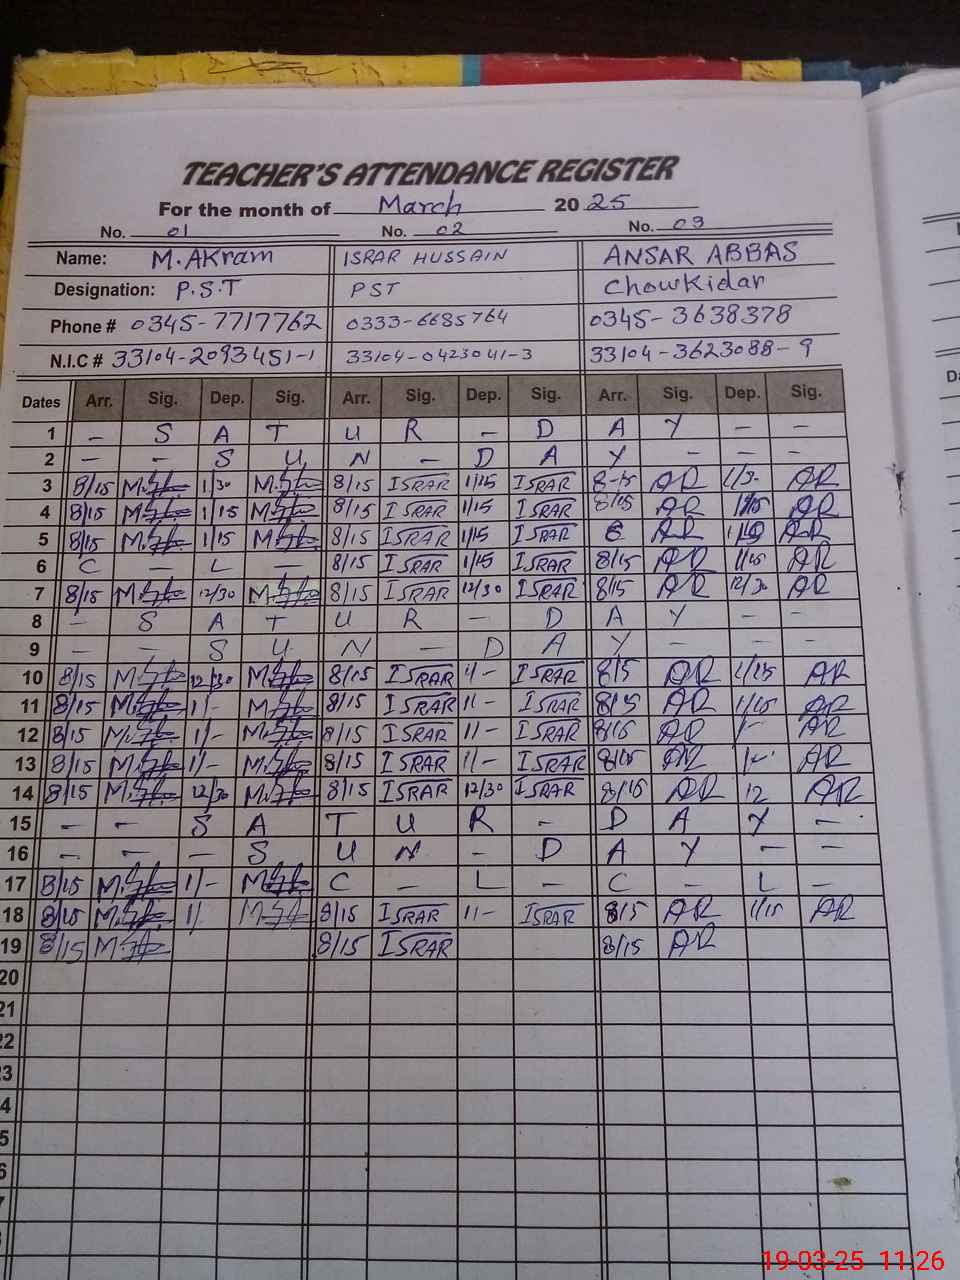 TEACHER'S ATTENDANCE REGISTER
For the month of March 20 25
No. 01 No. 02 No. 03
Name: M. AKram ISRAR HUSSAIN ANSAR ABBAS
Designation: P.S.T PST ChowKidar
Phone # 0345-7717762 0333-6685764 0345-3638378
N.I.C # 33104-2093451-1 33104-0423041-3 33104-3623088-9
Dates Arr. Sig. Dep. Sig. Arr. Sig. Dep. Sig. Arr. Sig. Dep. Sig.
1 - S A T U R - D A Y - -
2 - - S U N - D A Y - - -
3 8/15 1/30 8/15 ISRAR 1/15 ISRAR 8-15 AR 1/3- AR
4 8/15 1/15 8/15 ISRAR 1/15 ISRAR 8/15 AR 1/15 AR
5 8/15 1/15 8/15 ISRAR 1/15 ISRAR AR AR
6 C - L - 8/15 ISRAR 1/15 ISRAR 8/15 AR 1/15 AR
7 8/15 12/30 8/15 ISRAR 12/30 ISRAR 8/15 AR 12/30 AR
8 - S A T U R - D A Y - -
9 - - S U N - D A Y - - -
10 8/15 12/30 8/15 ISRAR 1/- ISRAR 8/5 AR 1/15 AR
11 8/15 1/- 8/15 ISRAR 1/- ISRAR 8/15 AR 1/15 AR
12 8/15 1/- 8/15 ISRAR 1/- ISRAR 8/15 AR 1- AR
13 8/15 1/- 8/15 ISRAR 1/- ISRAR 8/15 AR AR
14 8/15 12/30 8/15 ISRAR 12/30 ISRAR 8/15 AR 12 AR
15 - - S A T U R - D A Y -
16 - - - S U N - D A Y - -
17 8/15 1/- C - L - C - L -
18 8/15 1/ 8/15 ISRAR 1/- ISRAR 8/15 AR 1/15 AR
19 8/15 8/15 ISRAR 8/15 AR
20
21
22
23
4
5
6
7
19-03-25 11:26